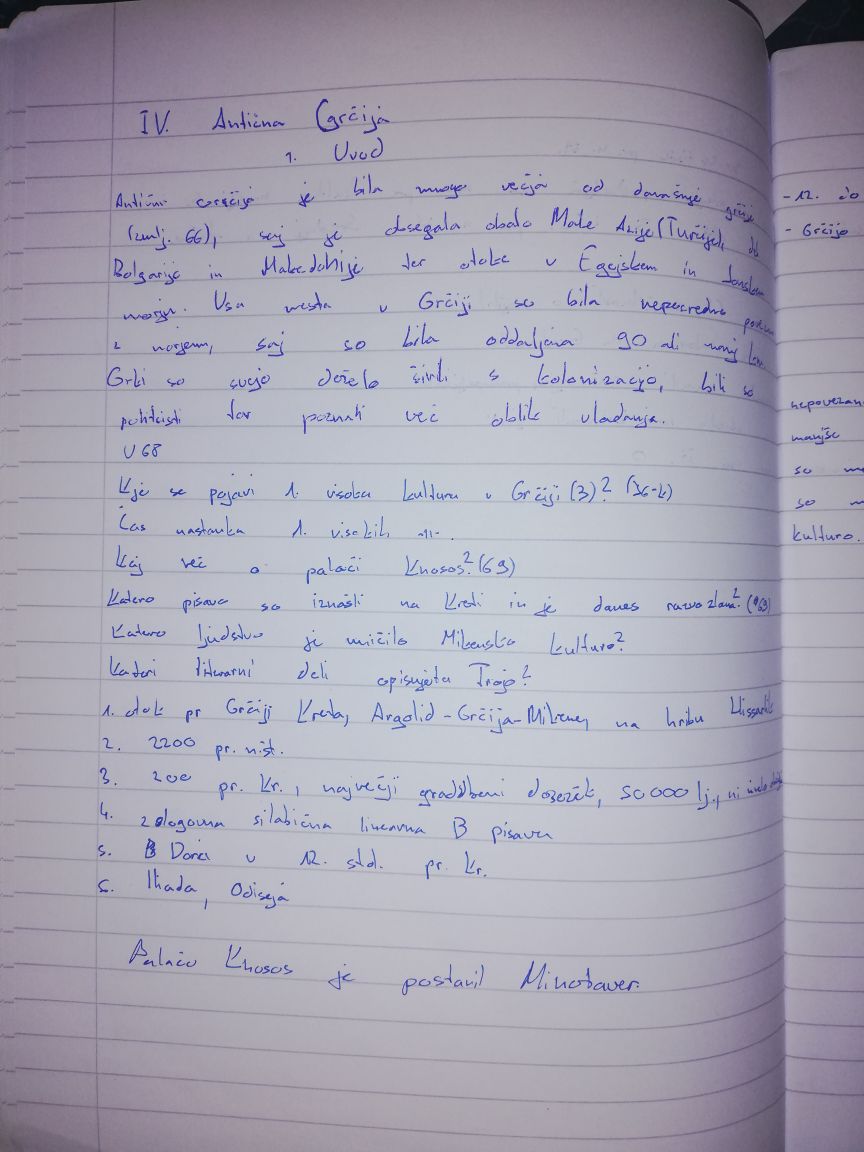 IV. Antična Grčija
1. Uvod
Antična Grčija je bila mnogo večja od današnje grčije
(zmlj. 66), saj je obsegala obalo Male Azije (Turčije), do
Bolgarije in Makedonije ter otoke v Egejskem in Jonskem
morju. Vsa mesta v Grčiji so bila neposredno
z morjem, saj so bila oddaljena 90 ali manj km
Grki so svojo deželo širili s kolonizacijo, bili so
politeisti ter poznali več oblik vladanja.
U 68
Kje se pojavi 1. visoka kultura v Grčiji (3)? (J6-k)
Čas nastanka 1. visokih -11-.
Kaj več o palači Knosos? (69)
Katero pisavo so iznašli na Kreti in je danes razvozlana? (69)
Katero ljudstvo je uničilo Mikensko kulturo?
Kateri literarni deli opisujeta Trojo?
1. otok pr Grčiji Kreta, Argolid-Grčija-Mikene, na hribu Hissarlik
2. 2200 pr. n. št.
3. 200 pr. Kr., največji gradbeni dosežek, 50 000 lj., ni imelo
4. zlogovna silabična linearna B pisava
5. Dorci v 12. stol. pr. Kr.
6. Iliada, Odiseja
Palačo Knosos je postavil Minotaver.
- 12. do
- Grčijo
nepovezan
manjše
so
so
kulturo.